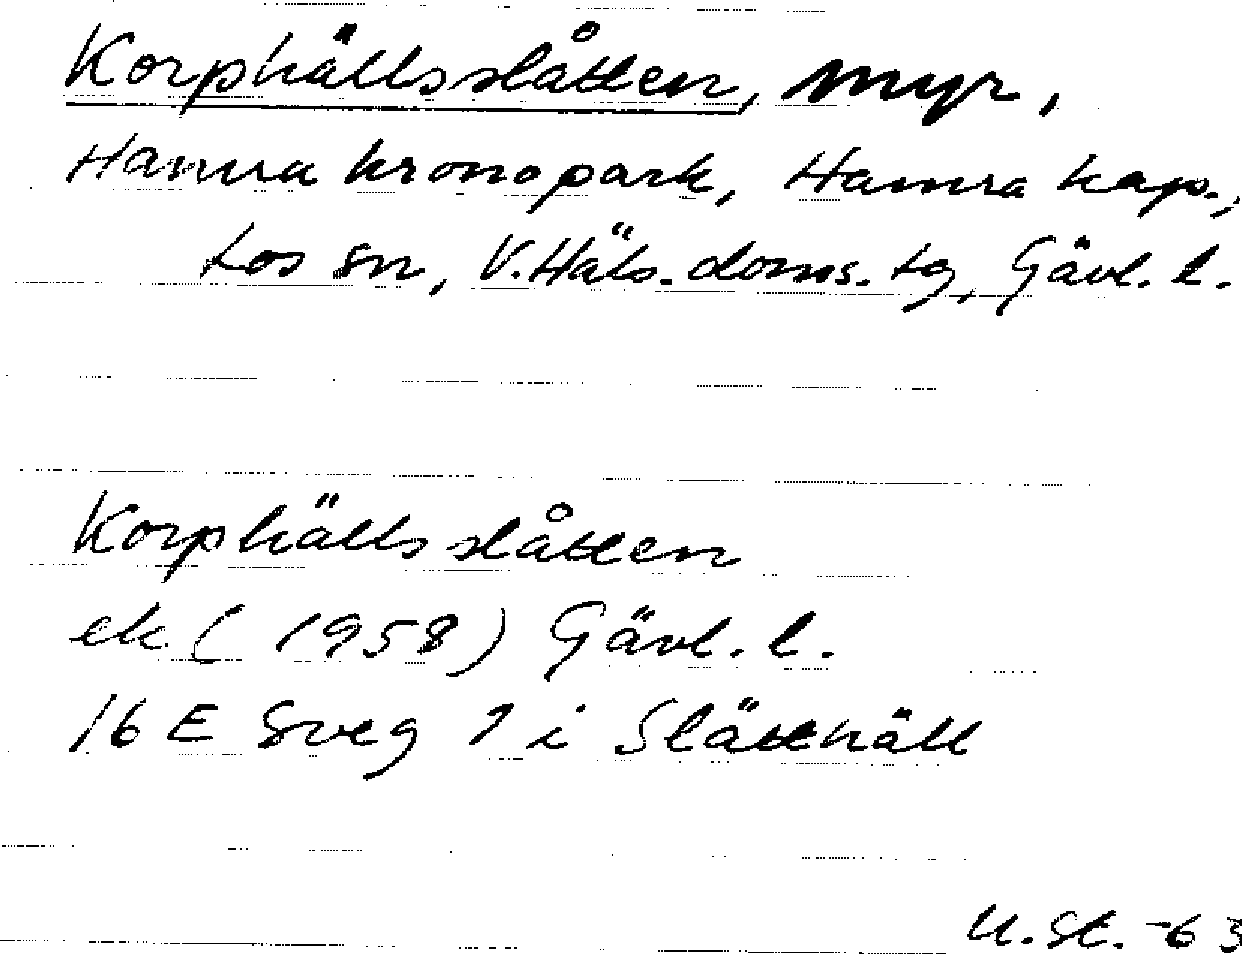 Korphällsslåtten, myr,
Hamra kronopark, Hamra kap.,
Los sn, V. Häls. doms. tg, Gävl. l.
Korphällsslåtten
ek (1958) Gävl. l.
16 E Sveg 1 i Slätthäll
U. St. -63